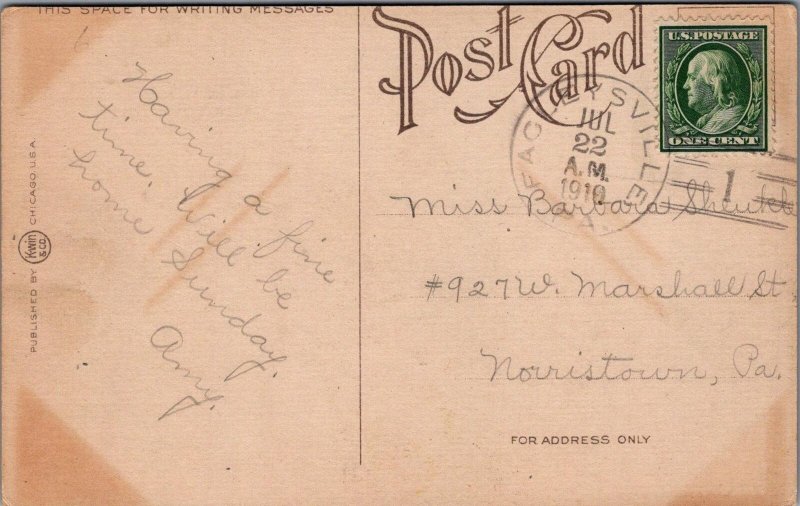 THIS SPACE FOR WRITING MESSAGES
Post Card
U.S. POSTAGE
ONE CENT
JUL
22
A.M.
1910
1
Having a fine
time. Will be
home Sunday.
Amy.
Miss Barbara
#927 W. Marshall St
Norristown, Pa.
FOR ADDRESS ONLY
PUBLISHED BY Kwin & CO. CHICAGO. U.S.A.